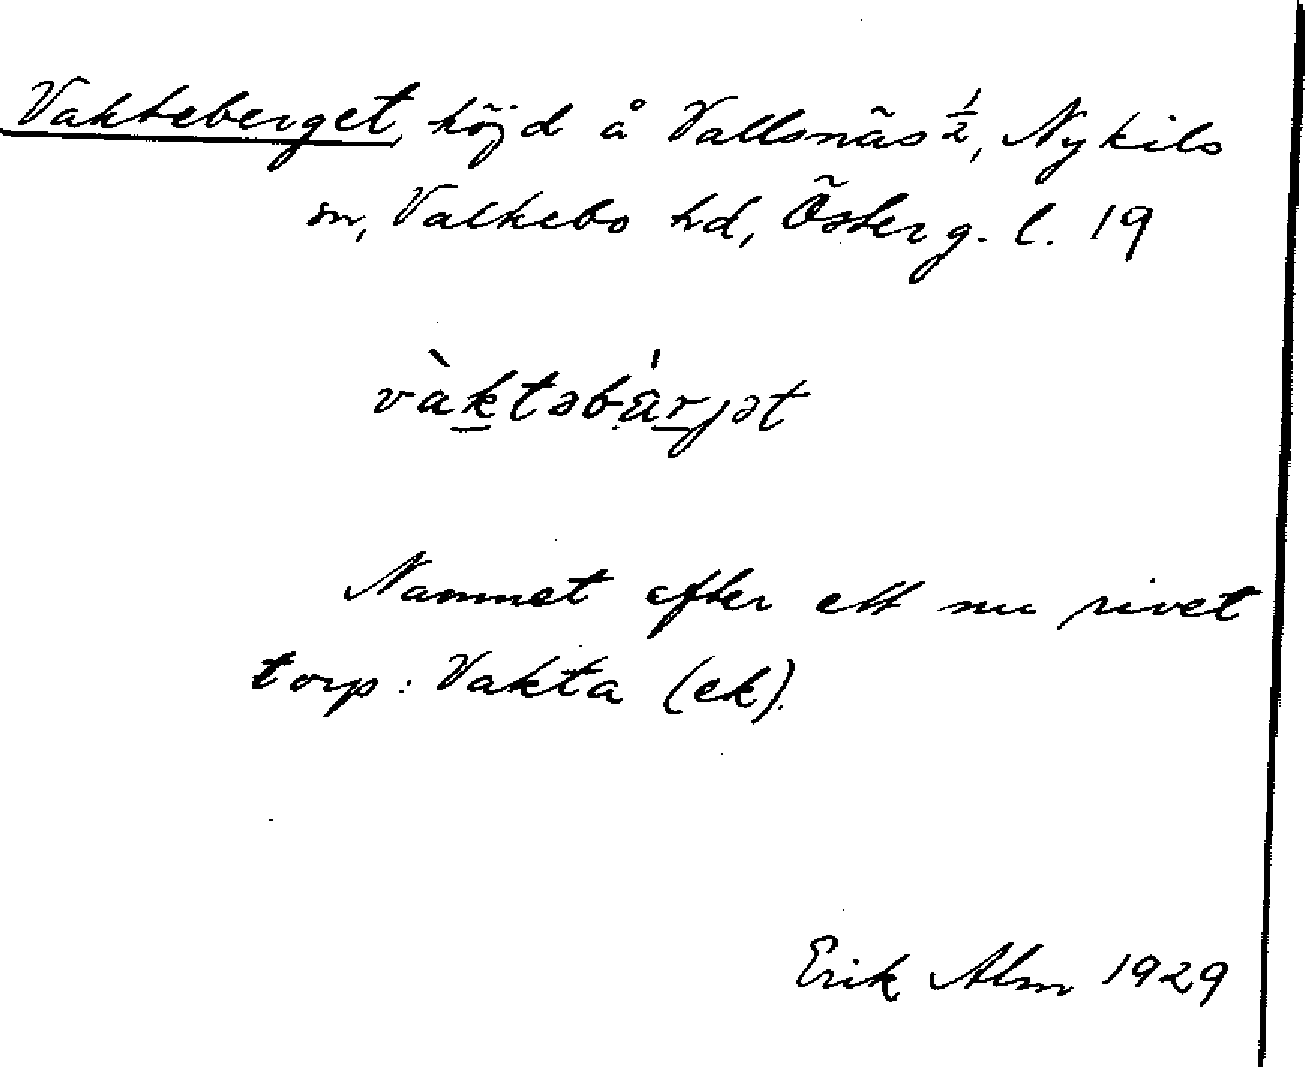 Vakteberget, höjd å Vallsnäs ½, Nykils
sn, Valkebo hd, Österg. l. 19
vàktəbá̤rjət
Namnet efter ett nu rivet
torp: Vakta (ek).
Erik Alm 1929